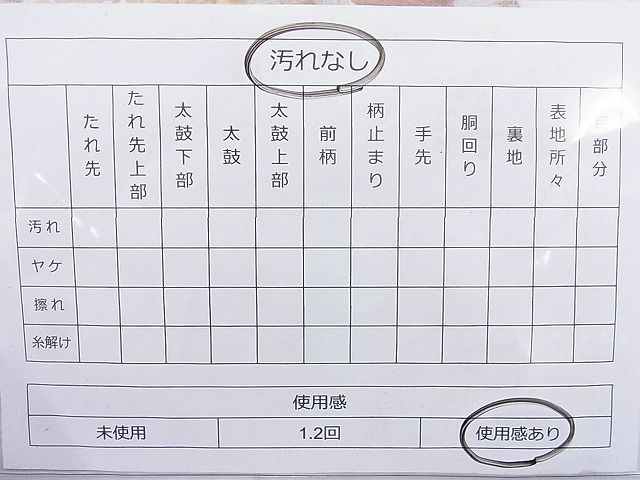 汚れなし
たれ先
たれ先上部
太鼓下部
太鼓
太鼓上部
前柄
柄止まり
手先
胴回り
裏地
表地所々
部分
汚れ
ヤケ
擦れ
糸解け
使用感
未使用
1.2回
使用感あり